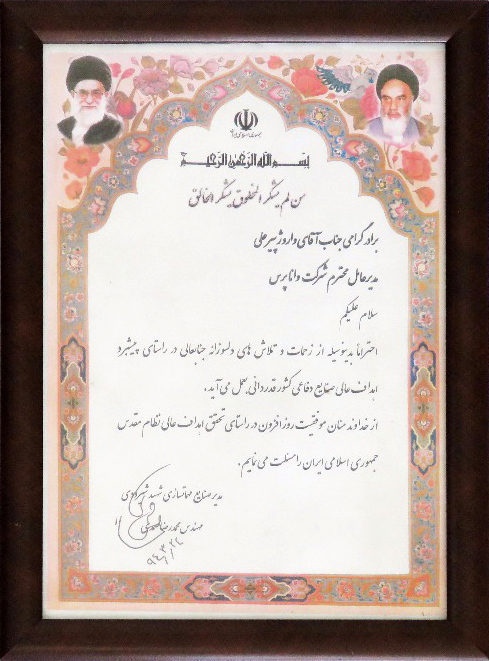 جمهوری اسلامی ایران
بسم الله الرحمن الرحیم
من لم یشکر المخلوق لم یشکر الخالق
برادر گرامی جناب آقای واروژ پیرعلی
مدیرعامل محترم شرکت واناپرس
سلام علیکم
احتراماً بدینوسیله از زحمات و تلاش های دلسوزانه جنابعالی در راستای پیشبرد
اهداف عالی صنایع دفاعی کشور قدردانی بعمل می آید.
از خداوند منان موفقیت روزافزون در راستای تحقق اهداف عالی نظام مقدس
جمهوری اسلامی ایران را مسئلت می نمایم.
مدیر صنایع مهماتسازی شهید
مهندس محمدرضا
۹۴/۳/۲۴